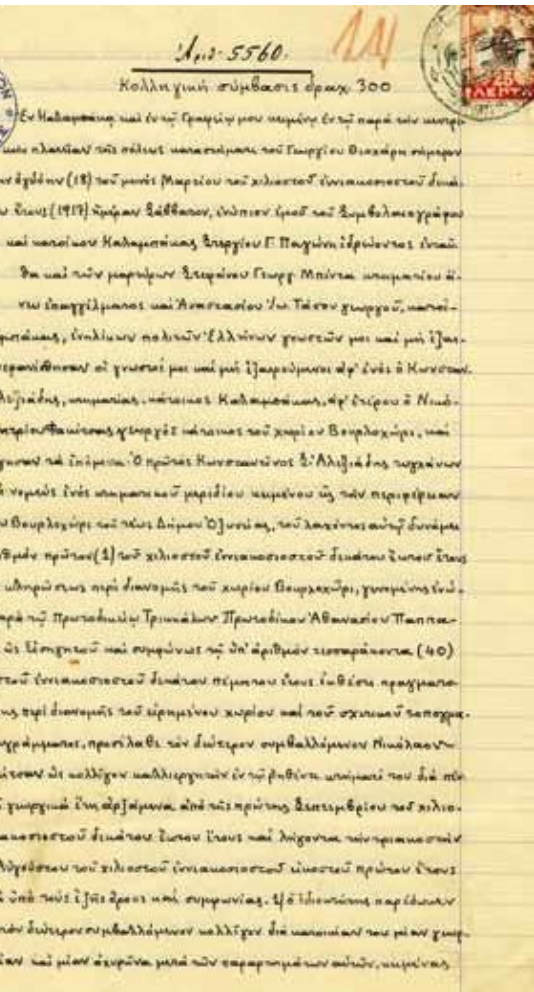 Ἀριθ. 5560.
14
Κολληγική σύμβασις δραχ. 300
25
ΛΕΠΤΑ
Ἐν Καλαμπάκᾳ καὶ ἐν τῷ Γραφείῳ μου κειμένῳ ἐν τῷ παρὰ τὴν κεντρι-
κὴν πλατεῖαν τῆς πόλεως καταστήματι τοῦ Γεωργίου Θεοχάρη σήμερον
ὀγδόην (18) τοῦ μηνὸς Μαρτίου τοῦ χιλιοστοῦ ἐννεακοσιοστοῦ δεκά-
ἔτους (1917) ἡμέραν Σάββατον, ἐνώπιον ἐμοῦ τοῦ Συμβολαιογράφου
καὶ κατοίκου Καλαμπάκας Στεργίου Γ. Παγώνη ἑδρεύοντος ἐνταῦ-
θα καὶ τῶν μαρτύρων Στεφάνου Γεωργ. Μπίντα κτηματίου ἄ-
νευ ἐπαγγέλματος καὶ Ἀναστασίου Ἰω. Τάσου γεωργοῦ, κατοί-
μπάκας, ἐνηλίκων πολιτῶν Ἑλλήνων γνωστῶν μοι καὶ μὴ ἐξαι-
ἐρανίσθησαν οἱ γνωστοί μοι καὶ μὴ ἐξαιρούμενοι ἀφ' ἑνὸς ὁ Κωνσταν.
λεξιάδης, κτηματίας, κάτοικος Καλαμπάκας, ἀφ' ἑτέρου ὁ Νικό-
ητρίου Φακίτσας γεωργὸς κάτοικος τοῦ χωρίου Βουρλοχώρι, καὶ
γησαν τὰ ἑπόμενα. Ὁ πρῶτος Κωνσταντῖνος Σ. Ἀλεξιάδης τυγχάνων
νομεὺς ἑνὸς κτηματικοῦ μεριδίου κειμένου εἰς τὴν περιφέρειαν
Βουρλοχώρι τοῦ τέως Δήμου Ὀξυνείας, τοῦ λαχόντος αὐτῷ δυνάμει
ιθμὸν πρῶτον (1) τοῦ χιλιοστοῦ ἐννεακοσιοστοῦ δεκάτου ἕκτου ἔτους
κληρώσεως περὶ διανομῆς τοῦ χωρίου Βουρλοχώρι, γενομένης ἐνώ-
τῷ Πρωτοδικείῳ Τρικκάλων Πρωτοδίκου Ἀθανασίου Παππα-
ὡς Εἰσηγητοῦ καὶ συμφώνως τῇ ὑπ' ἀριθμὸν τεσσαράκοντα (40)
στοῦ ἐννεακοσιοστοῦ δεκάτου πέμπτου ἔτους ἐκθέσει πραγματο-
περὶ διανομῆς τοῦ εἰρημένου χωρίου καὶ τοῦ σχετικοῦ τοπογρα-
γράμματος, προσέλαβε τὸν δεύτερον συμβαλλόμενον Νικόλαον
κίτσαν ὡς κολλῆγον καλλιεργητὴν ἐν τῷ ῥηθέντι κτήματί του διὰ πέν
γεωργικὰ ἔτη ἀρξάμενα ἀπὸ τῆς πρώτης Σεπτεμβρίου τοῦ χιλιο-
ακοσιοστοῦ δεκάτου ἕκτου ἔτους καὶ λήγοντα τὴν τριακοστὴν
Αὐγούστου τοῦ χιλιοστοῦ ἐννεακοσιοστοῦ εἰκοστοῦ πρώτου ἔτους
ὑπὸ τοὺς ἑξῆς ὅρους καὶ συμφωνίας. 1) ὁ ἰδιοκτήτης παρέδωκεν
τὸν δεύτερον συμβαλλόμενον κολλῆγον διὰ κατοικίαν του μίαν γεωρ-
καὶ μίαν ἀχυρῶνα μετὰ τῶν παραρτημάτων αὐτῶν, κειμένας